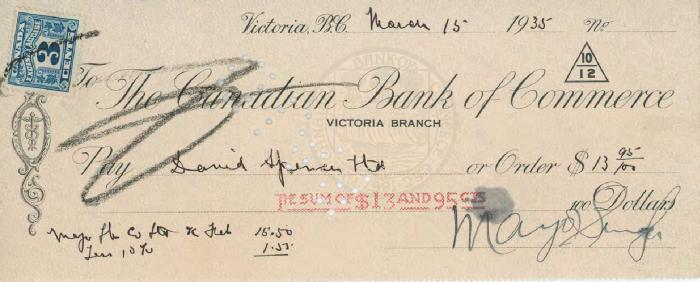 Victoria, B.C. March 15 1935 No
CANADA
3
CENTS
10
12
To The Canadian Bank of Commerce
VICTORIA BRANCH
Pay David Spencer Ltd or Order $ 13 95/100
THE SUM OF $13 AND 95 CTS
100 Dollars
Mayo Lbr Co Feb 15.50
Less 10% 1.55
Mayo Singh